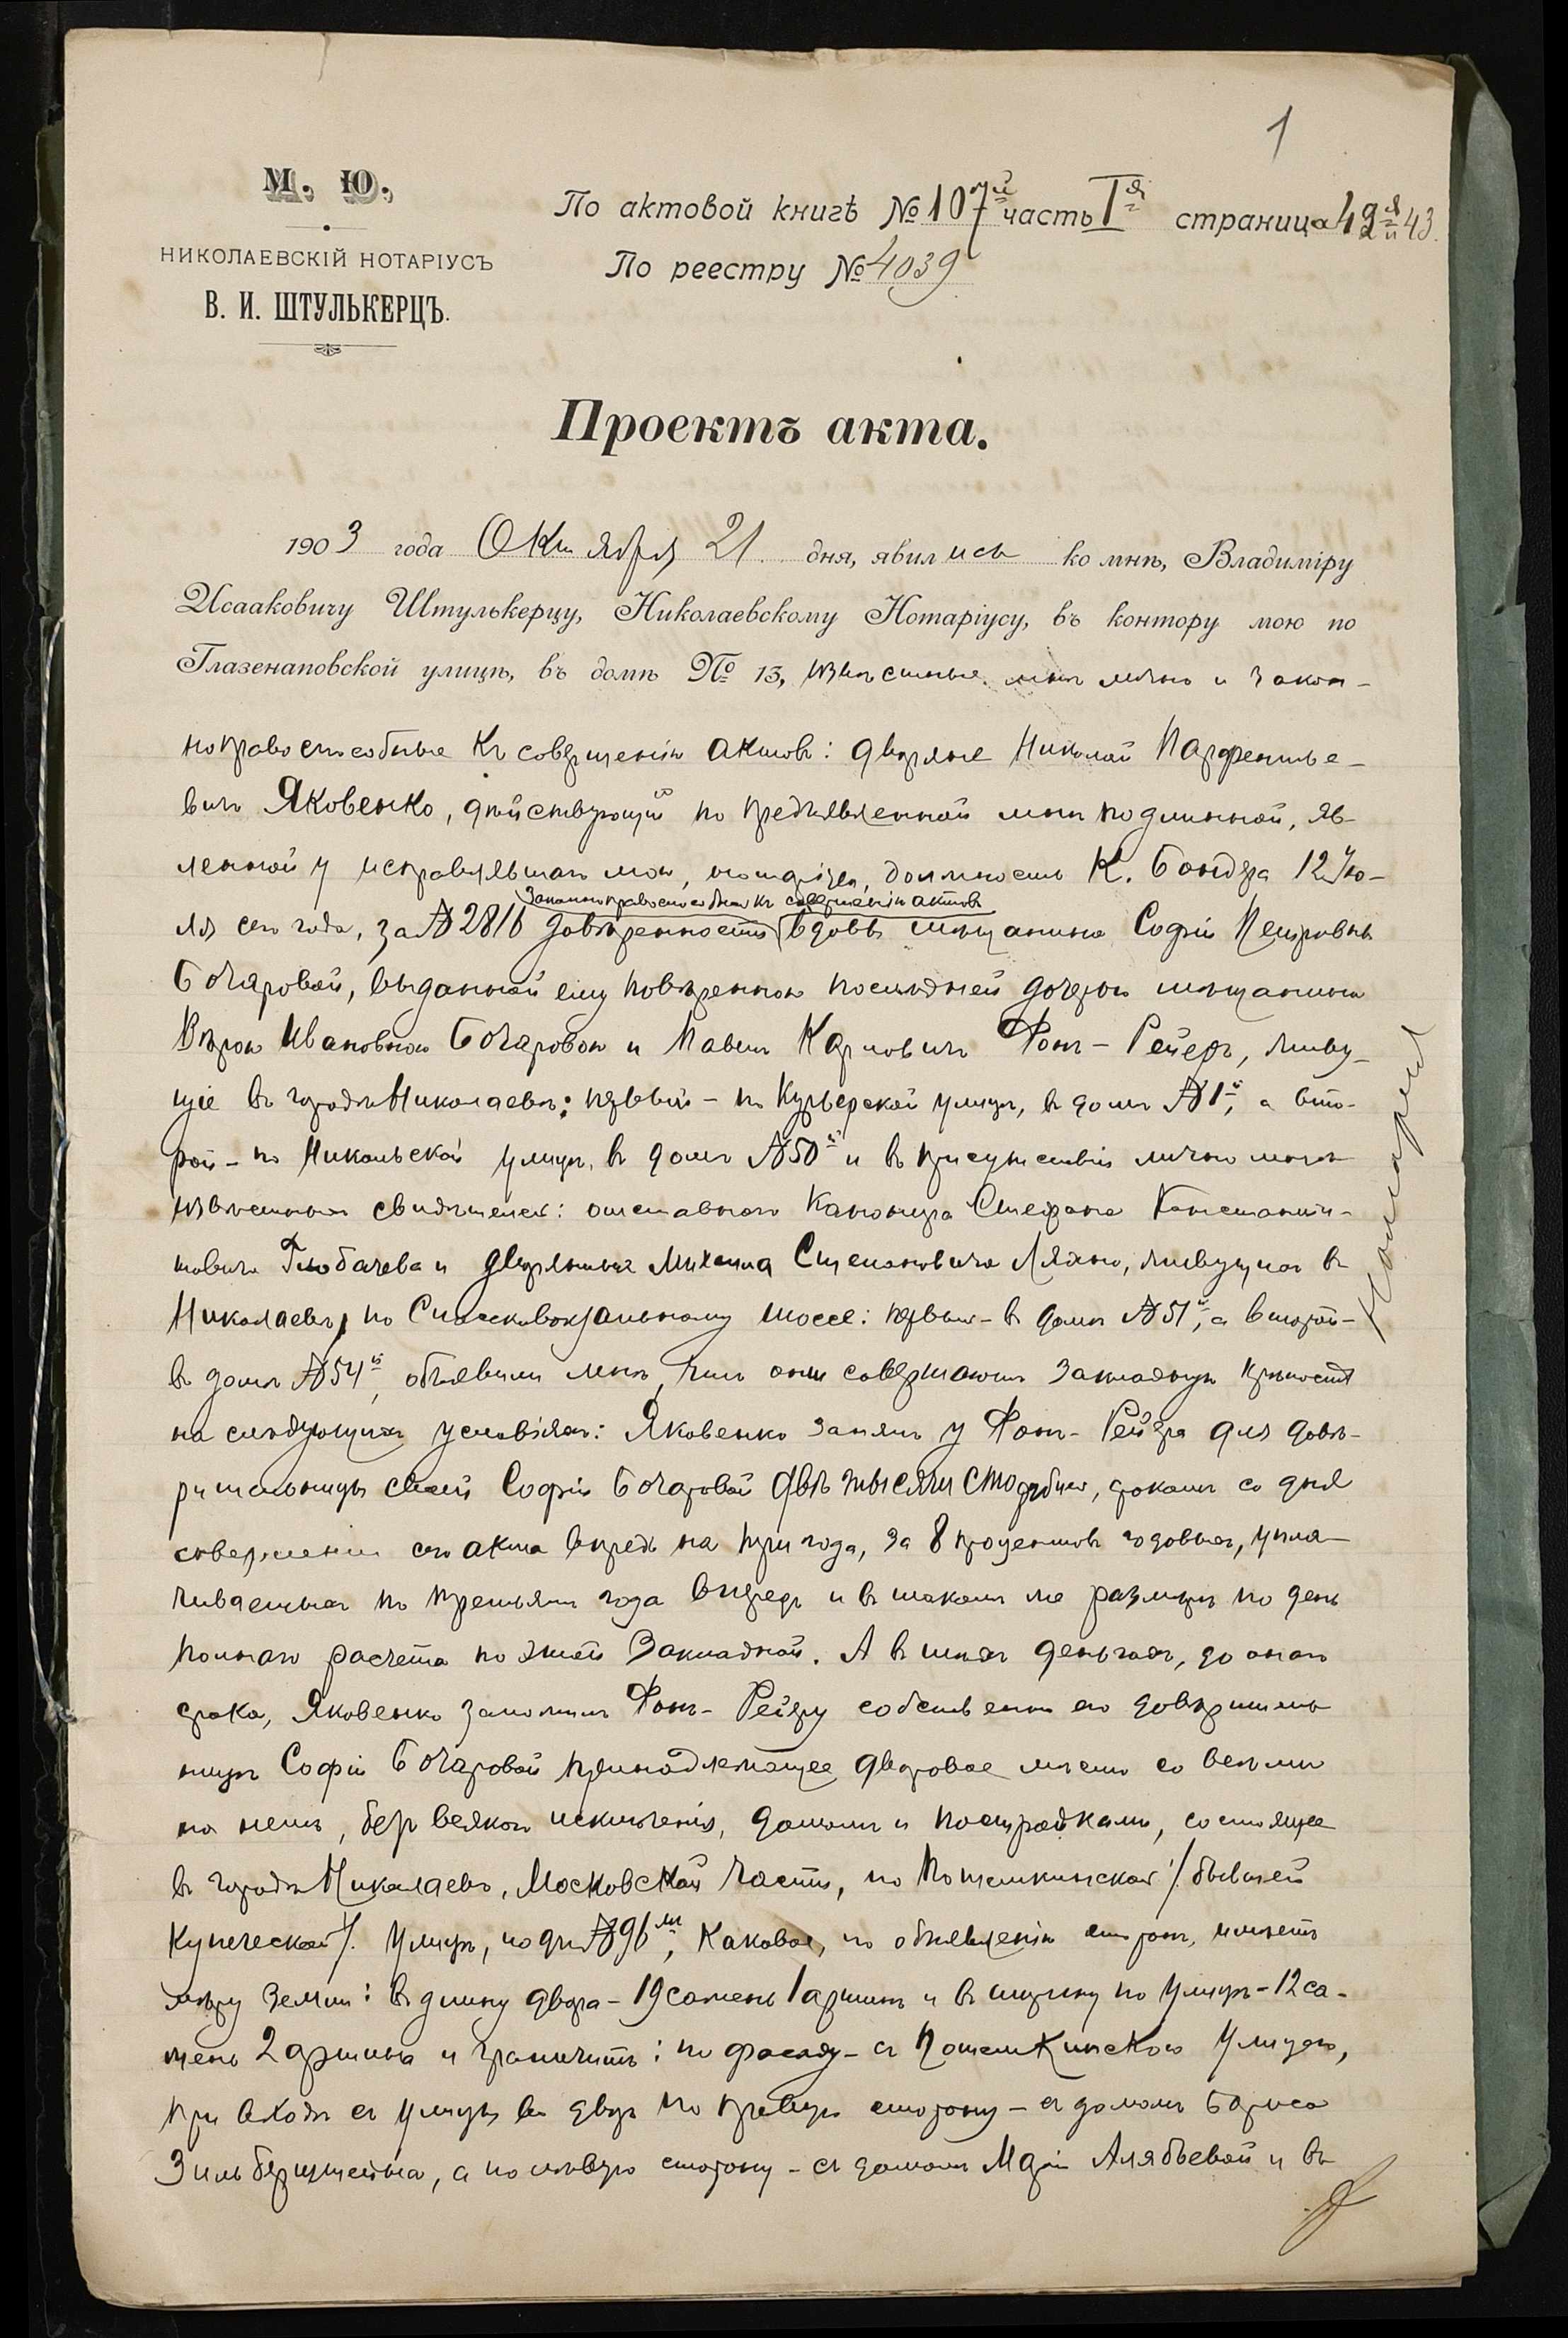 1
М. Ю.
НИКОЛАЕВСКІЙ НОТАРІУСЪ
В. И. ШТУЛЬКЕРЦЪ.
По актовой книгѣ № 107й часть Iя страница 42я и 43.
По реестру № 4039
Проектъ акта.
1903 года Октября 21 дня, явились ко мнѣ, Владиміру
Исааковичу Штулькерцу, Николаевскому Нотаріусу, въ контору мою по
Глазенаповской улицѣ, въ домѣ № 13, извѣстные мнѣ лично и закон-
ноправоспособные къ совершенію актовъ: дворяне Николай Парфентье-
вичъ Яковенко, дѣйствующій по предъявленной мнѣ подлинной, яв-
ленной у исправлявшаго мою, нотаріуса, должность К. Бондера 12 Ію-
ля сего года, за № 2816 довѣренности
законноправоспособной къ совершенію актовъ
вдовѣ мѣщанина Софіи Петровнѣ
Бочаровой, выданной ему повѣренною послѣдней дочерью мѣщанина
Вѣрою Ивановною Бочаровою и Павелъ Карловичъ Фонъ-Рейеръ, живу-
щіе въ городѣ Николаевѣ: первый - по Курьерской улицѣ, въ домѣ № 1й, а вто-
рой - по Никольской улицѣ, въ домѣ № 50й и въ присутствіи лично мнѣ
извѣстныхъ свидѣтелей: отставного канонира Стефана Константи-
новича Глобачева и дворянина Михаила Степановича Ляхно, живущихъ въ
Николаевѣ, по Спасскивокзальному шоссе: первый - въ домѣ № 51й, а второй -
въ домѣ № 54й, объявили мнѣ, что они совершаютъ закладную крѣпость
на слѣдующихъ условіяхъ: Яковенко занялъ у Фонъ-Рейера для довѣ-
рительницы своей Софіи Бочаровой двѣ тысячи сто рублей, срокомъ со дня
совершенія сего акта впредь на три года, за 8 процентовъ годовыхъ, упла-
чиваемыхъ по третьямъ года впередъ и въ такомъ же размѣрѣ по день
полнаго расчета по этой закладной. А въ тѣхъ деньгахъ, до онаго
срока, Яковенко заложилъ Фонъ-Рейеру собственно его довѣритель-
ницѣ Софіи Бочаровой принадлежащее дворовое мѣсто со всѣми
на немъ, безъ всякаго исключенія, домомъ и постройками, состоящее
въ городѣ Николаевѣ, Московской части, по Потемкинской /бывшей
Купеческой/ улицѣ, подъ № 96ми, каковое, по объявленію сторонъ, имѣетъ
мѣру земли: въ длину двора - 19 сажень 1 аршинъ и въ ширину по улицѣ - 12 са-
жень 2 аршина и граничитъ: по фасаду - съ Потемкинскою улицею,
при входѣ съ улицы во дворъ по правую сторону - съ домомъ Бориса
Зильберштейна, а по лѣвую сторону - съ домомъ Маріи Алябьевой и въ
Нотаріусъ